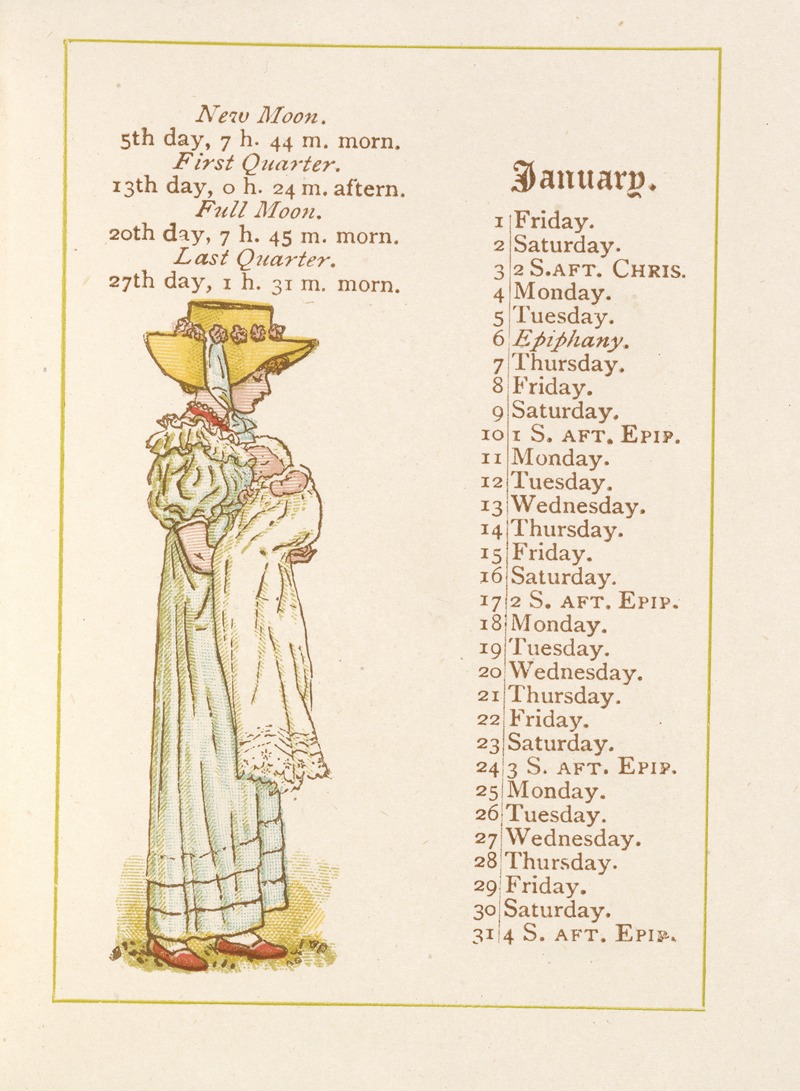 New Moon.
5th day, 7 h. 44 m. morn.
First Quarter.
13th day, 0 h. 24 m. aftern.
Full Moon.
20th day, 7 h. 45 m. morn.
Last Quarter.
27th day, 1 h. 31 m. morn.
January.
1 Friday.
2 Saturday.
3 2 S. AFT. CHRIS.
4 Monday.
5 Tuesday.
6 Epiphany.
7 Thursday.
8 Friday.
9 Saturday.
10 1 S. AFT. EPIP.
11 Monday.
12 Tuesday.
13 Wednesday.
14 Thursday.
15 Friday.
16 Saturday.
17 2 S. AFT. EPIP.
18 Monday.
19 Tuesday.
20 Wednesday.
21 Thursday.
22 Friday.
23 Saturday.
24 3 S. AFT. EPIP.
25 Monday.
26 Tuesday.
27 Wednesday.
28 Thursday.
29 Friday.
30 Saturday.
31 4 S. AFT. EPIP.